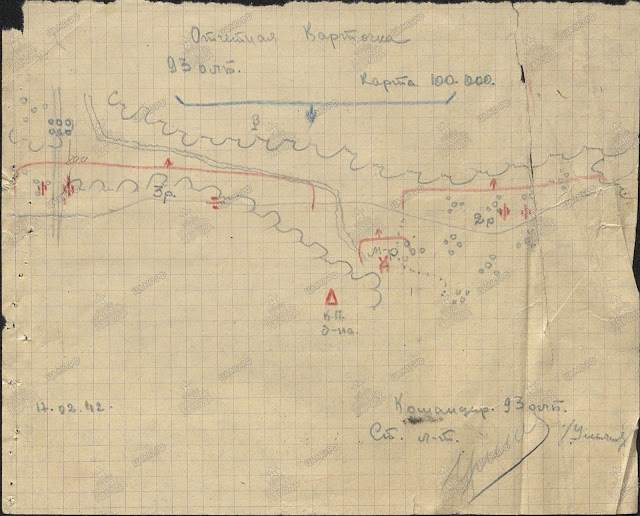 Отчетная Карточка
93 олт.
Карта 100.000.
В
3р.
2р
м-р.
К.П.
д-на.
17.02.42.
Командир. 93 олт.
Ст. л-т.